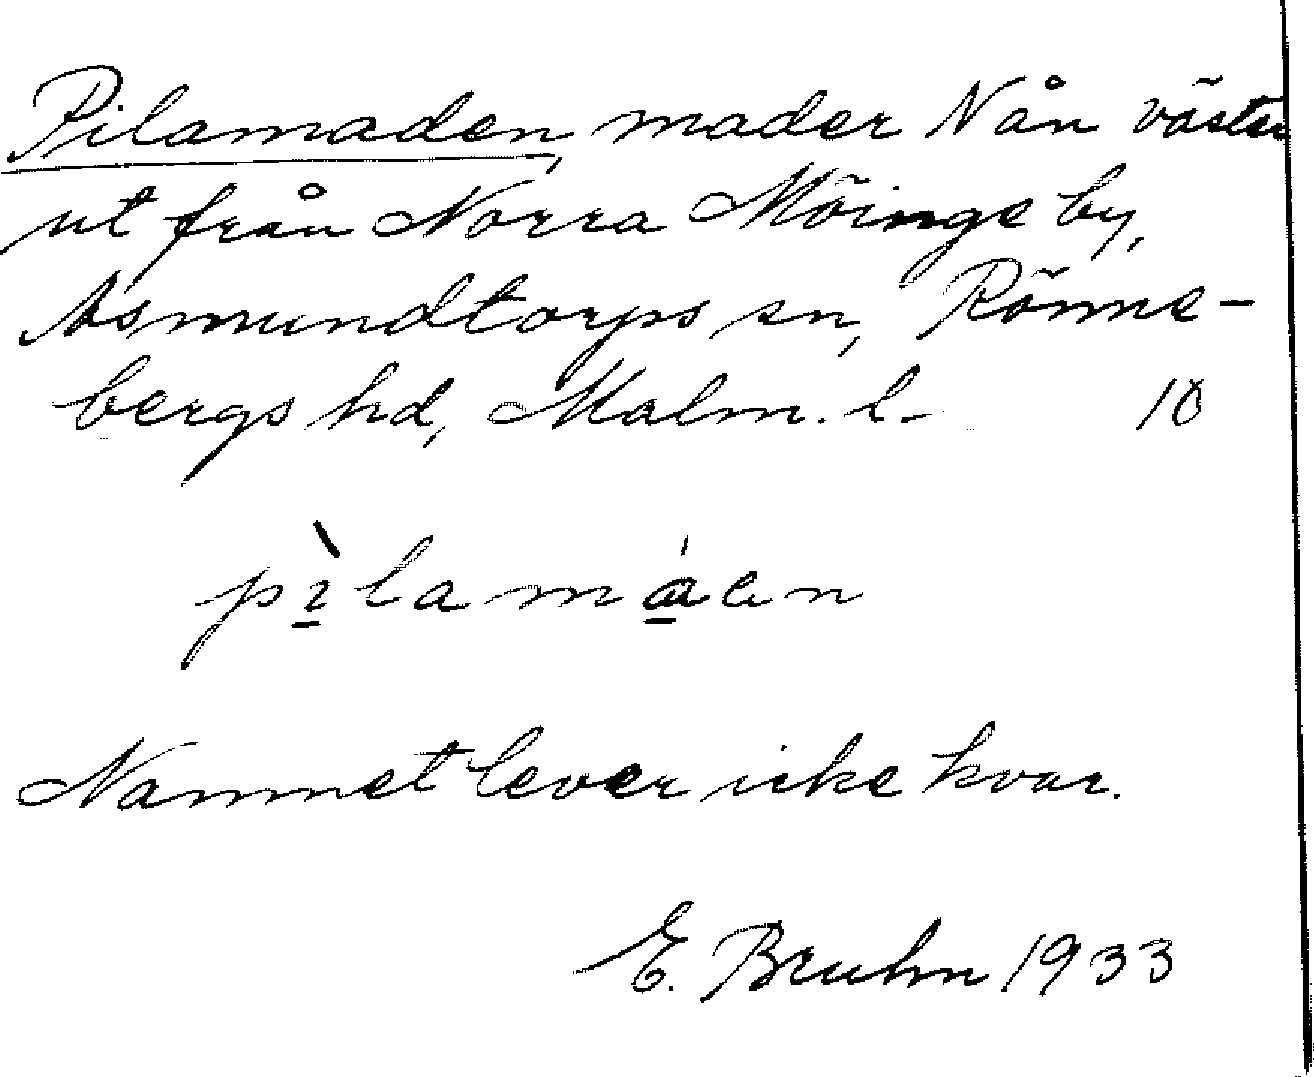 Pilamaden, mader N ån väster
ut från Norra Möinge by,
Asmundtorps sn, Rönne-
bergs hd, Malm. l. 10
pìlamáen
Namnet lever icke kvar.
E. Bruhn 1933